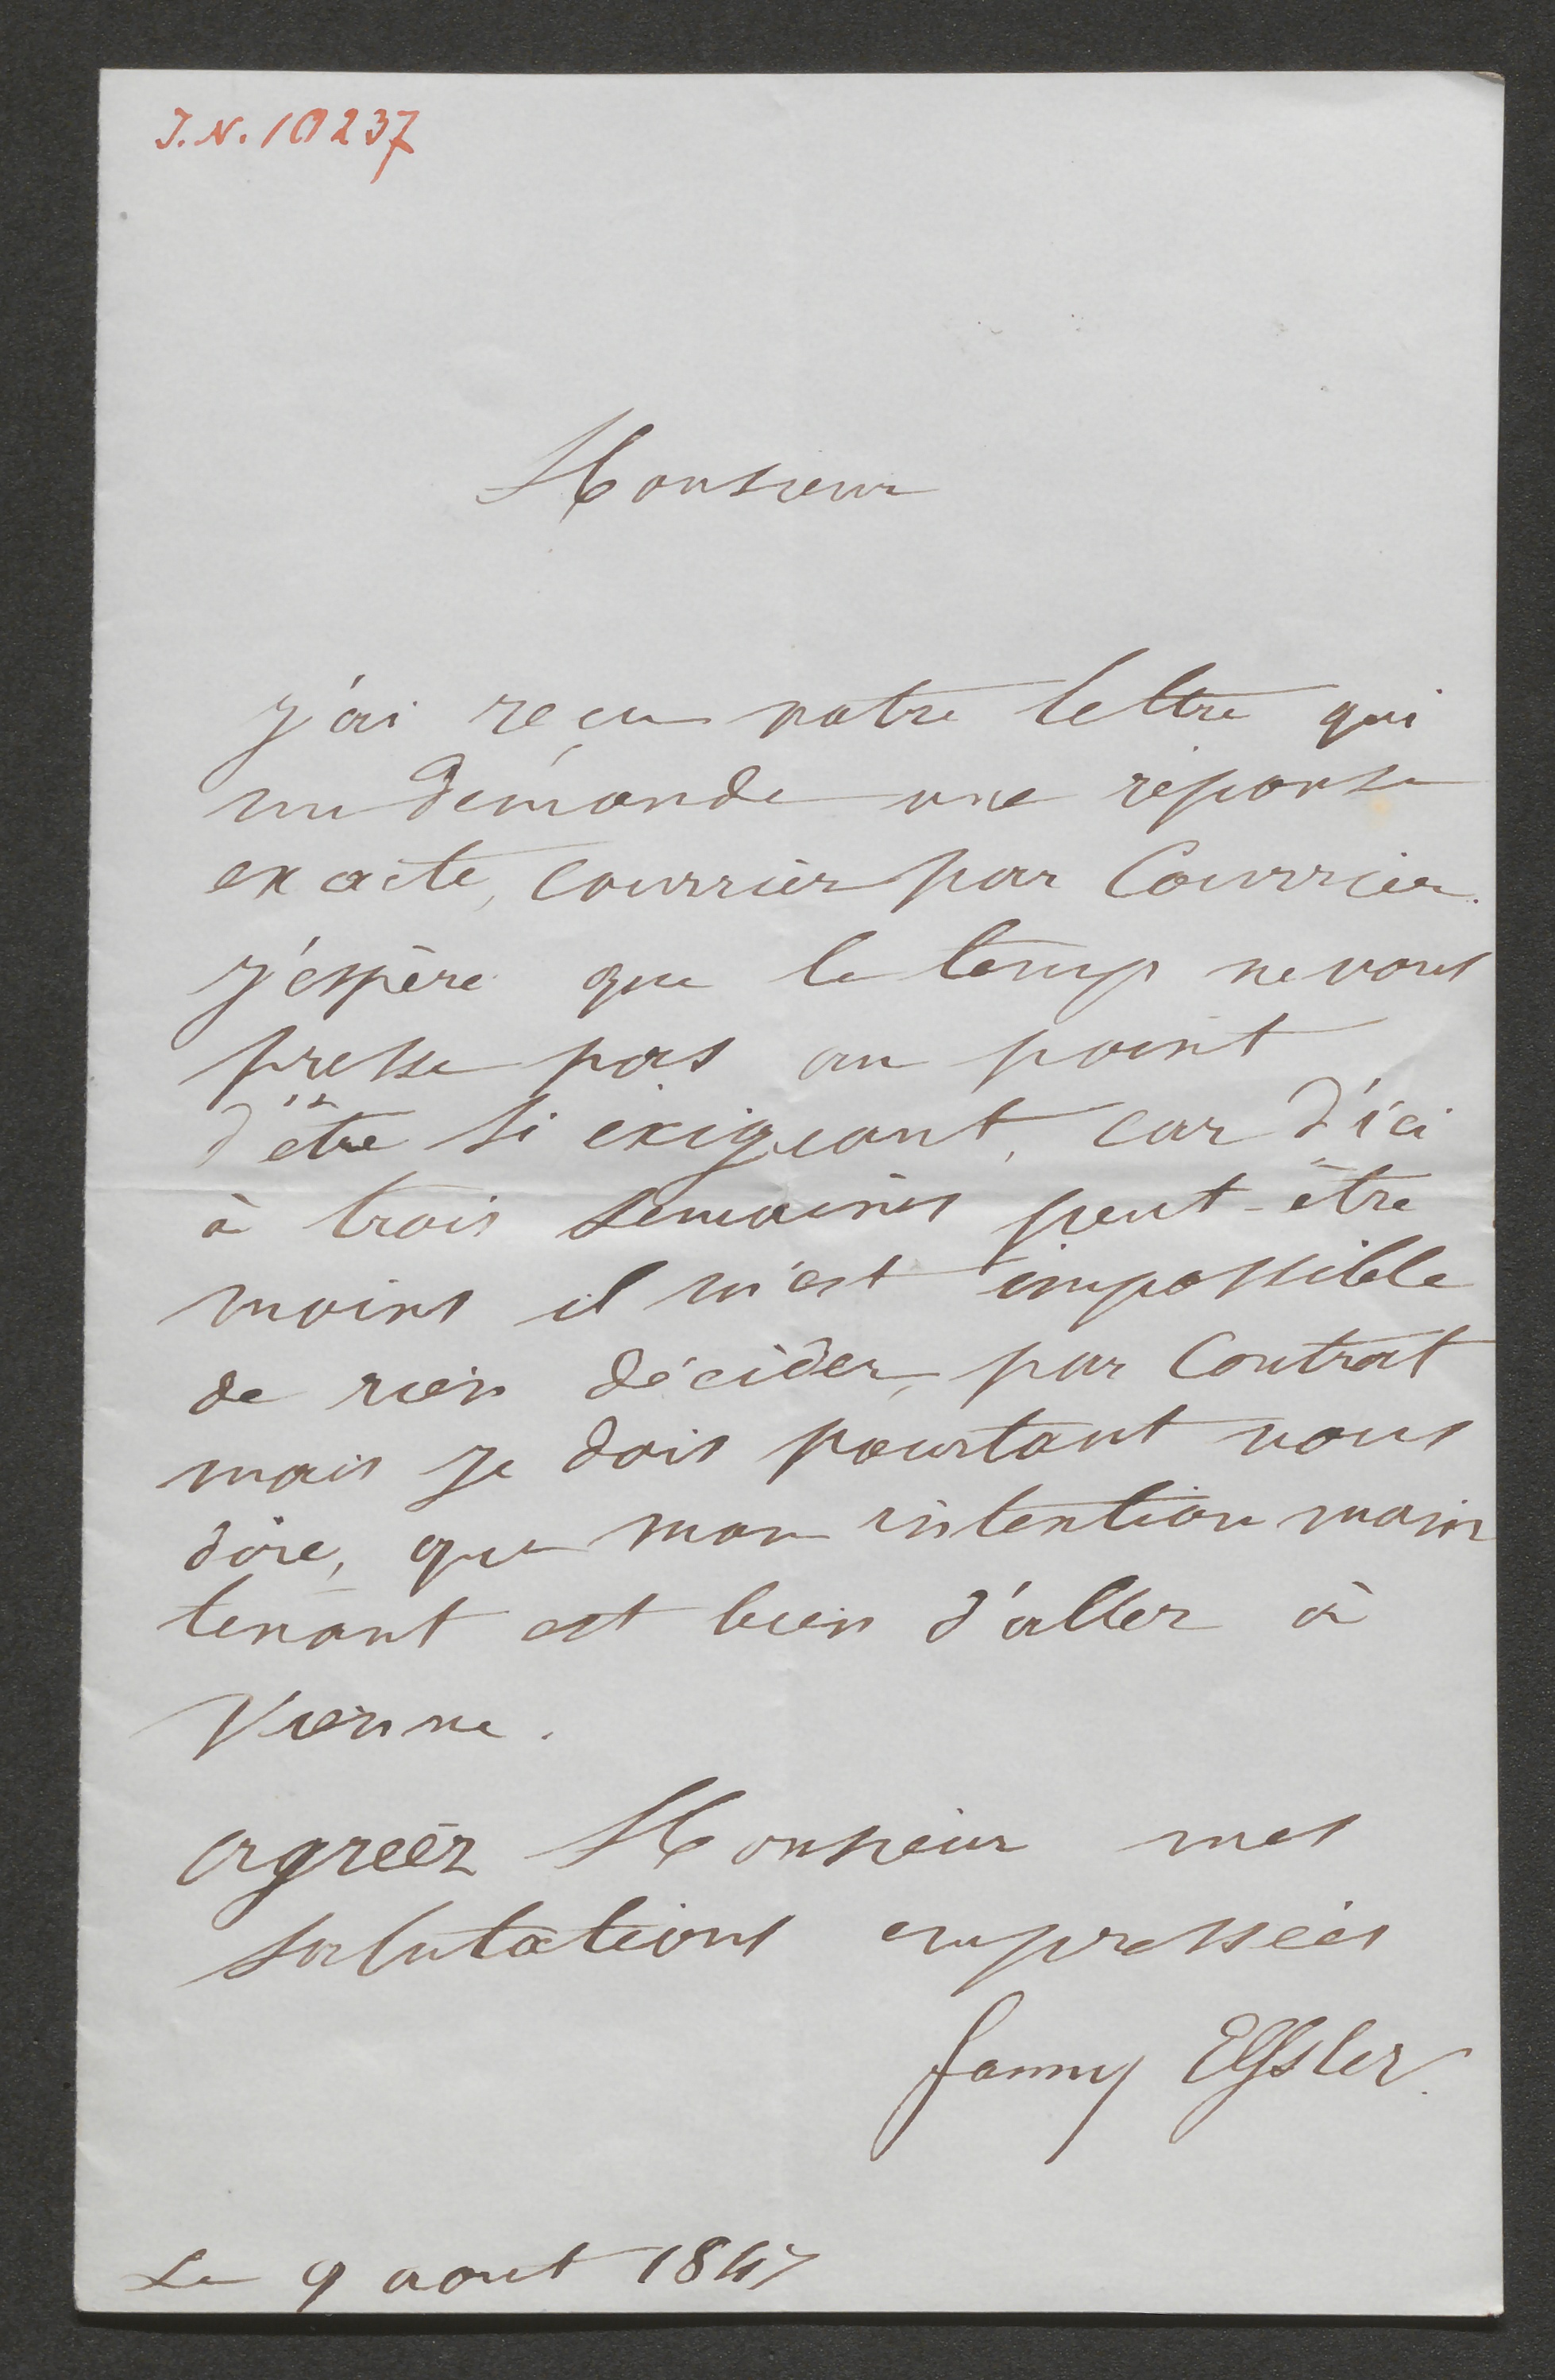 J.N. 10237
Monsieur
j'ai reçu votre lettre qui
me demande une réponse
exacte, courrier par Courrier.
j'éspère que le temps ne vous
presse pas au point
d'être si exigeant, car d'ici
à trois semaines peut-être
moins il m'est impossible
de rien décider, par Contrat
mais je dois pourtant vous
dire, que mon intention main
tenant est bien d'aller à
Vienne.
agreéz Monsieur mes
salutations empresseés
fanny Elssler
Le 9 aout 1847